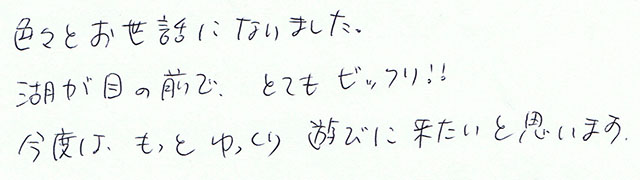 色々とお世話になりました。
湖が目の前で、とてもビックリ!!
今度は、もっとゆっくり遊びに来たいと思います。